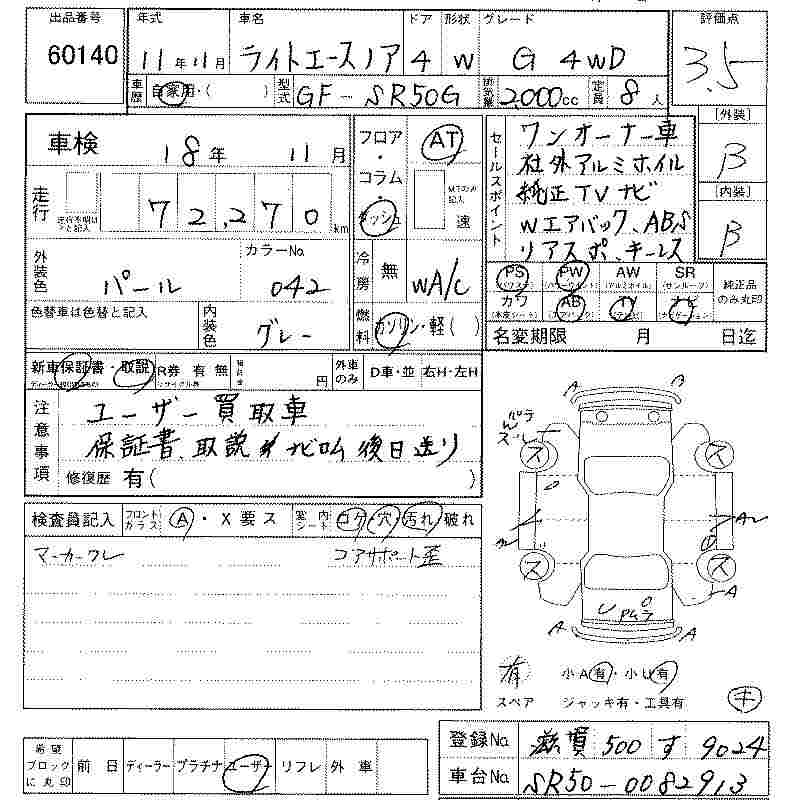 出品番号 年式 車名 ドア 形状 グレード 評価点
60140 11年11月 ライトエースノア 4 W G 4WD 3.5
車歴 自家用・( ) 型式 GF-SR50G 排気量 2,000cc 定員 8人
[外装]
B
[内装]
B
車検 18年 11月
フロア・コラム・ダッシュ AT
MTのみ記入
速
走行 72,270 km
走行不明は?と記入
外装色 パール カラーNo. 042
色替車は色替と記入 内装色 グレー
冷房 無 WA/C
燃料 ガソリン・軽( )
セールスポイント
ワンオーナー車
社外アルミホイル
純正TVナビ
Wエアバック、ABS
リアスポ、キーレス
PS PW AW SR 純正品
(パワステ) (パワーウインド) (アルミホイル) (サンルーフ) のみ丸印
カワ AB TV ナビ
(本皮シート) (エアバック) (テレビ) (ナビゲーション)
名変期限 月 日迄
新車保証書・取説 R券 有 無 円 外車のみ D車・並 右H・左H
リサイクル券
注意事項
ユーザー買取車
保証書、取説 ナビロム 後日送り
修復歴 有( )
検査員記入 フロントガラス A・X要ス 室内シート コゲ・穴・汚れ・破れ
マーカーワレ コアサポート歪
A A
ス ス
A
ス ス
A
A A
有 小A有・小U有
スペア ジャッキ有・工具有 キ
希望ブロックに丸印 前日 ディーラー プラチナ ユーザー リフレ 外車
登録No. 滋賀 500 す 9024
車台No. SR50-0082913